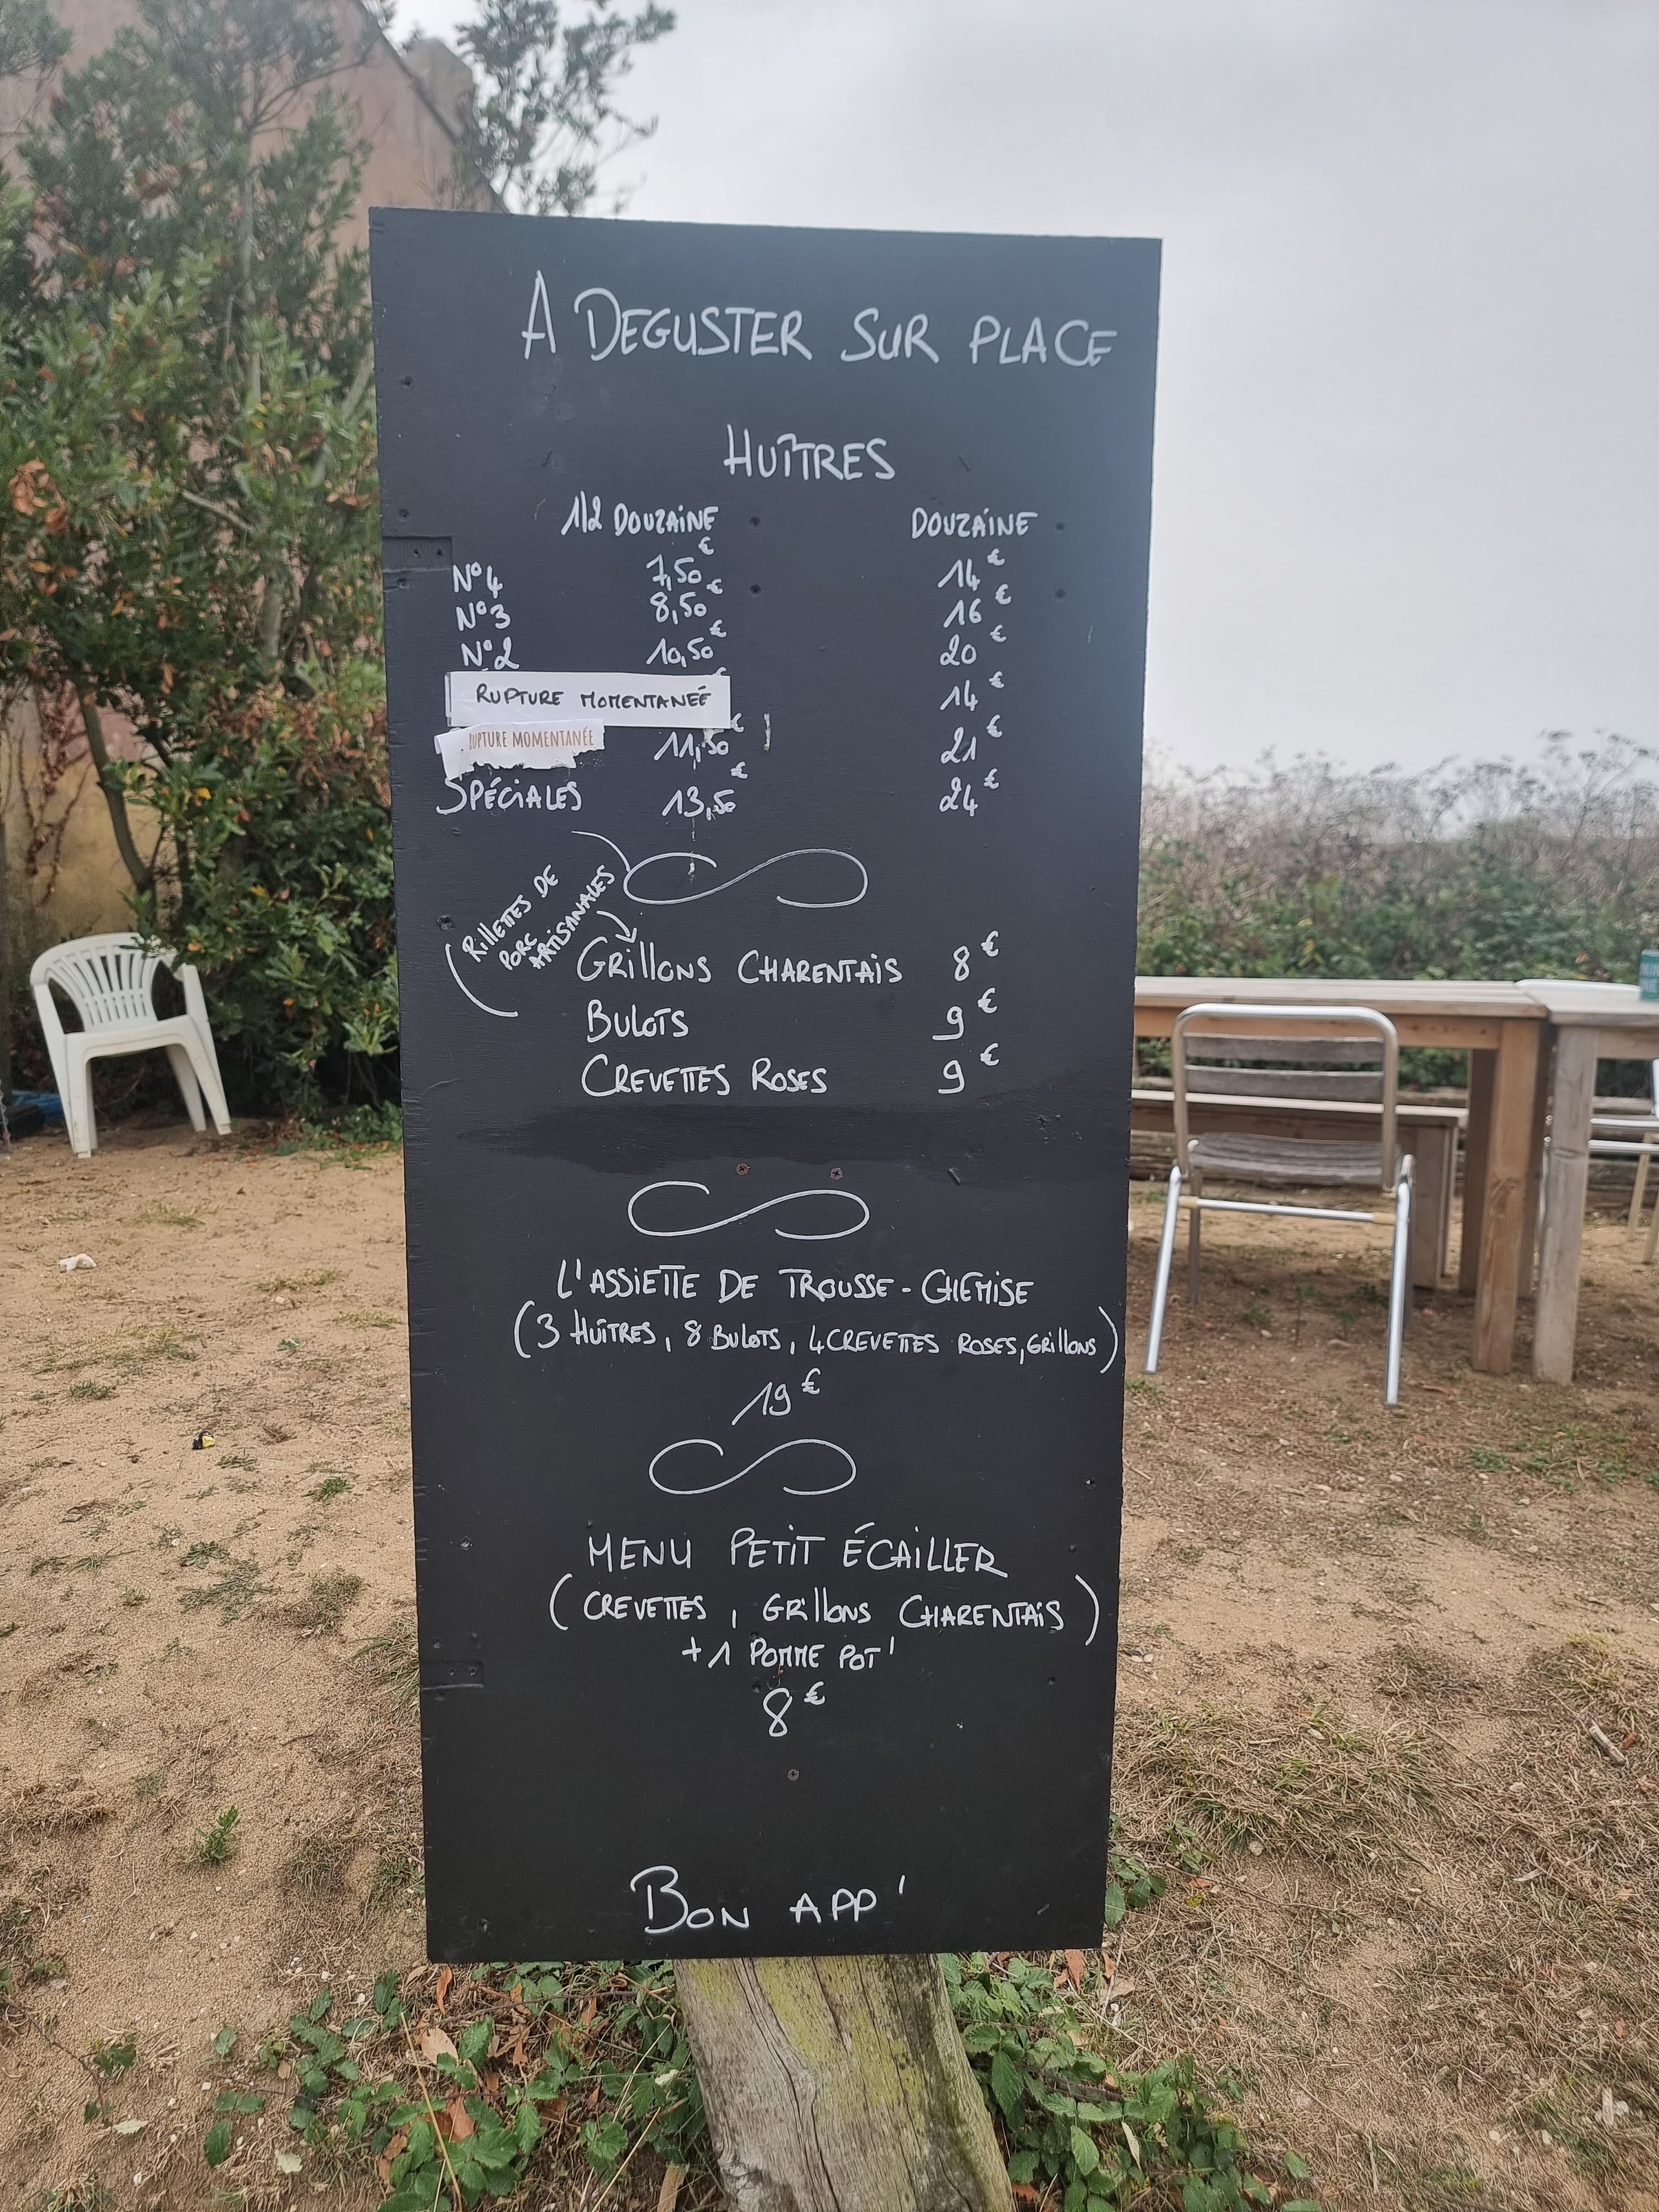 A DEGUSTER SUR PLACE
HUÎTRES
1/2 DOUZAINE DOUZAINE
N°4 7,50€ 14€
N°3 8,50€ 16€
N°2 10,50€ 20€
RUPTURE MOMENTANEÉ 14€
RUPTURE MOMENTANÉE 11,50€ 21€
SPÉCIALES 13,50€ 24€
RILLETTES DE
PORC
ARTISANALES
GRILLONS CHARENTAIS 8€
BULOTS 9€
CREVETTES ROSES 9€
L'ASSIETTE DE TROUSSE-CHEMISE
(3 HUÎTRES, 8 BULOTS, 4 CREVETTES ROSES, GRILLONS)
19€
MENU PETIT ÉCAILLER
(CREVETTES, GRILLONS CHARENTAIS)
+1 POMME POT'
8€
BON APP'